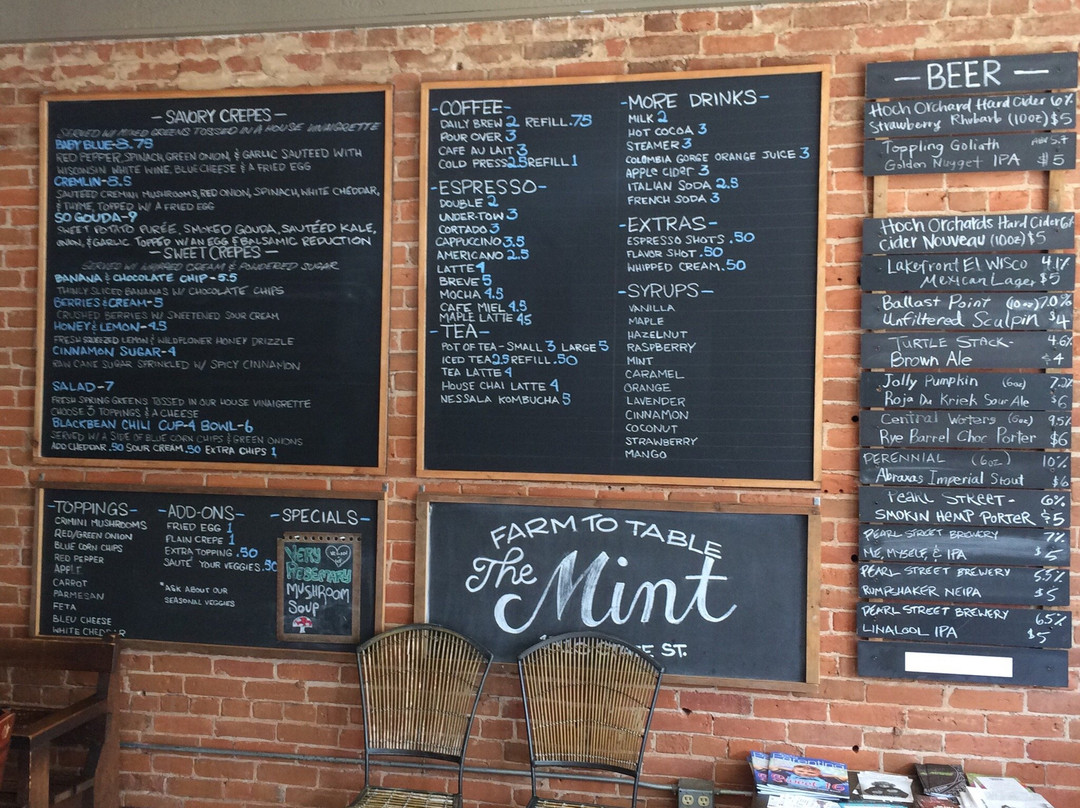 - SAVORY CREPES -
SERVED W/ MIXED GREENS TOSSED IN A HOUSE VINAIGRETTE
BABY BLUE-8.75
RED PEPPER, SPINACH, GREEN ONION, & GARLIC SAUTEED WITH
WISCONSIN WHITE WINE, BLUE CHEESE & A FRIED EGG
CREMLIN-8.5
SAUTEED CREMINI MUSHROOMS, RED ONION, SPINACH, WHITE CHEDDAR,
& THYME, TOPPED W/ A FRIED EGG
SO GOUDA-9
SWEET POTATO PURÉE, SMOKED GOUDA, SAUTÉED KALE,
ONION, & GARLIC TOPPED W/ AN EGG & BALSAMIC REDUCTION
- SWEET CREPES -
SERVED W/ WHIPPED CREAM & POWDERED SUGAR
BANANA & CHOCOLATE CHIP-5.5
THINLY SLICED BANANAS W/ CHOCOLATE CHIPS
BERRIES & CREAM-5
CRUSHED BERRIES W/ SWEETENED SOUR CREAM
HONEY & LEMON-4.5
FRESH SQUEEZED LEMON & WILDFLOWER HONEY DRIZZLE
CINNAMON SUGAR-4
RAW CANE SUGAR SPRINKLED W/ SPICY CINNAMON
SALAD-7
FRESH SPRING GREENS TOSSED IN OUR HOUSE VINAIGRETTE
CHOOSE 3 TOPPINGS & A CHEESE
BLACKBEAN CHILI CUP-4 BOWL-6
SERVED W/ A SIDE OF BLUE CORN CHIPS & GREEN ONIONS
ADD CHEDDAR .50 SOUR CREAM .50 EXTRA CHIPS 1
-TOPPINGS-
CRIMINI MUSHROOMS
RED/GREEN ONION
BLUE CORN CHIPS
RED PEPPER
APPLE
CARROT
PARMESAN
FETA
BLEU CHEESE
WHITE CHEDDAR
-ADD-ONS-
FRIED EGG 1
PLAIN CREPE 1
EXTRA TOPPING .50
SAUTÉ YOUR VEGGIES .50
*ASK ABOUT OUR
SEASONAL VEGGIES
-SPECIALS-
VERY
MUSHROOM
SOUP
-COFFEE-
DAILY BREW 2 REFILL .75
POUR OVER 3
CAFE AU LAIT 3
COLD PRESS 2.5 REFILL 1
-ESPRESSO-
DOUBLE 2
UNDER-TOW 3
CORTADO 3
CAPPUCCINO 3.5
AMERICANO 2.5
LATTE 4
BREVE 5
MOCHA 4.5
CAFE MIEL 4.5
MAPLE LATTE 4.5
-TEA-
POT OF TEA-SMALL 3 LARGE 5
ICED TEA 2.5 REFILL .50
TEA LATTE 4
HOUSE CHAI LATTE 4
NESSALA KOMBUCHA 5
-MORE DRINKS-
MILK 2
HOT COCOA 3
STEAMER 3
COLOMBIA GORGE ORANGE JUICE 3
APPLE CIDER 3
ITALIAN SODA 2.5
FRENCH SODA 3
-EXTRAS-
ESPRESSO SHOTS .50
FLAVOR SHOT .50
WHIPPED CREAM .50
-SYRUPS-
VANILLA
MAPLE
HAZELNUT
RASPBERRY
MINT
CARAMEL
ORANGE
LAVENDER
CINNAMON
COCONUT
STRAWBERRY
MANGO
FARM TO TABLE
The Mint
ST.
-BEER-
Hoch Orchard Hard Cider 6%
Strawberry Rhubarb (10oz) $5
Toppling Goliath
Golden Nugget IPA $5
Hoch Orchards Hard Cider 6%
Cider Nouveau (10oz) $5
Lakefront El WISCO 4.1%
Mexican Lager $5
Ballast Point (10oz) 7.0%
Unfiltered Sculpin $4
TURTLE STACK- 4.6%
Brown Ale $4
Jolly Pumpkin (6oz) 7.2%
Roja Du Kriek Sour Ale $6
Central Waters (6oz) 9.5%
Rye Barrel Choc Porter $6
PERENNIAL (6oz) 10%
Abraxas Imperial Stout $6
PEARL STREET- 6%
SMOKIN HEMP PORTER $5
PEARL STREET BREWERY 7%
ME, MYSELF, & IPA $5
PEARL STREET BREWERY 5.5%
RUMPSHAKER NEIPA $5
PEARL STREET BREWERY 6.5%
LINALOOL IPA $5